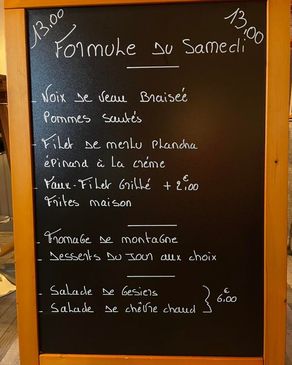 13.00 13.00
Formule Du Samedi
- Noix De Veau Braisée
Pommes sautés
- Filet de merlu Plancha
épinard à la crème
- Faux-Filet Grillé + 2€,00
Frites maison
- Fromage de montagne
- Desserts Du Jour aux choix
- Salade de Gesiers
- Salade de chèvre chaud } 6€.00